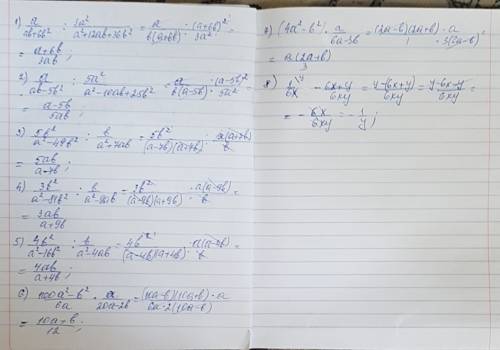 1) a/(ab+6b²) : 3a²/(a²+12ab+36b²) = a/(b(a+6b)) · (a+6b)²/3a² =
= (a+6b)/3ab ;
2) a/(ab-5b²) : 5a²/(a²-10ab+25b²) = a/(b(a-5b)) · (a-5b)²/5a² =
= (a-5b)/5ab
3) 5b²/(a²-49b²) : b/(a²+7ab) = 5b²/((a-7b)(a+7b)) · a(a+7b)/b
= 5ab/(a-7b) ;
4) 3b²/(a²-81b²) : b/(a²-9ab) = 3b²/((a-9b)(a+9b)) · a(a-9b)/b =
= 3ab/(a+9b)
5) 4b²/(a²-16b²) : b/(a²-4ab) = 4b²/((a-4b)(a+4b)) · a(a-4b)/b =
= 4ab/(a+4b) ;
6) (100a²-b²)/6a · a/(20a-2b) = (10a-b)(10a+b)·a/(6a·2(10a-b))
= (10a+b)/12 ;
7) (4a²-b²) · a/(6a-3b) = (2a-b)(2a+b)/1 · a/(3(2a-b)) =
= a(2a+b)/3
8) 1/6x - (6x+y)/6xy = (y-(6x+y))/6xy = (y-6x-y)/6xy =
= - 6x/6xy = - 1/y ;